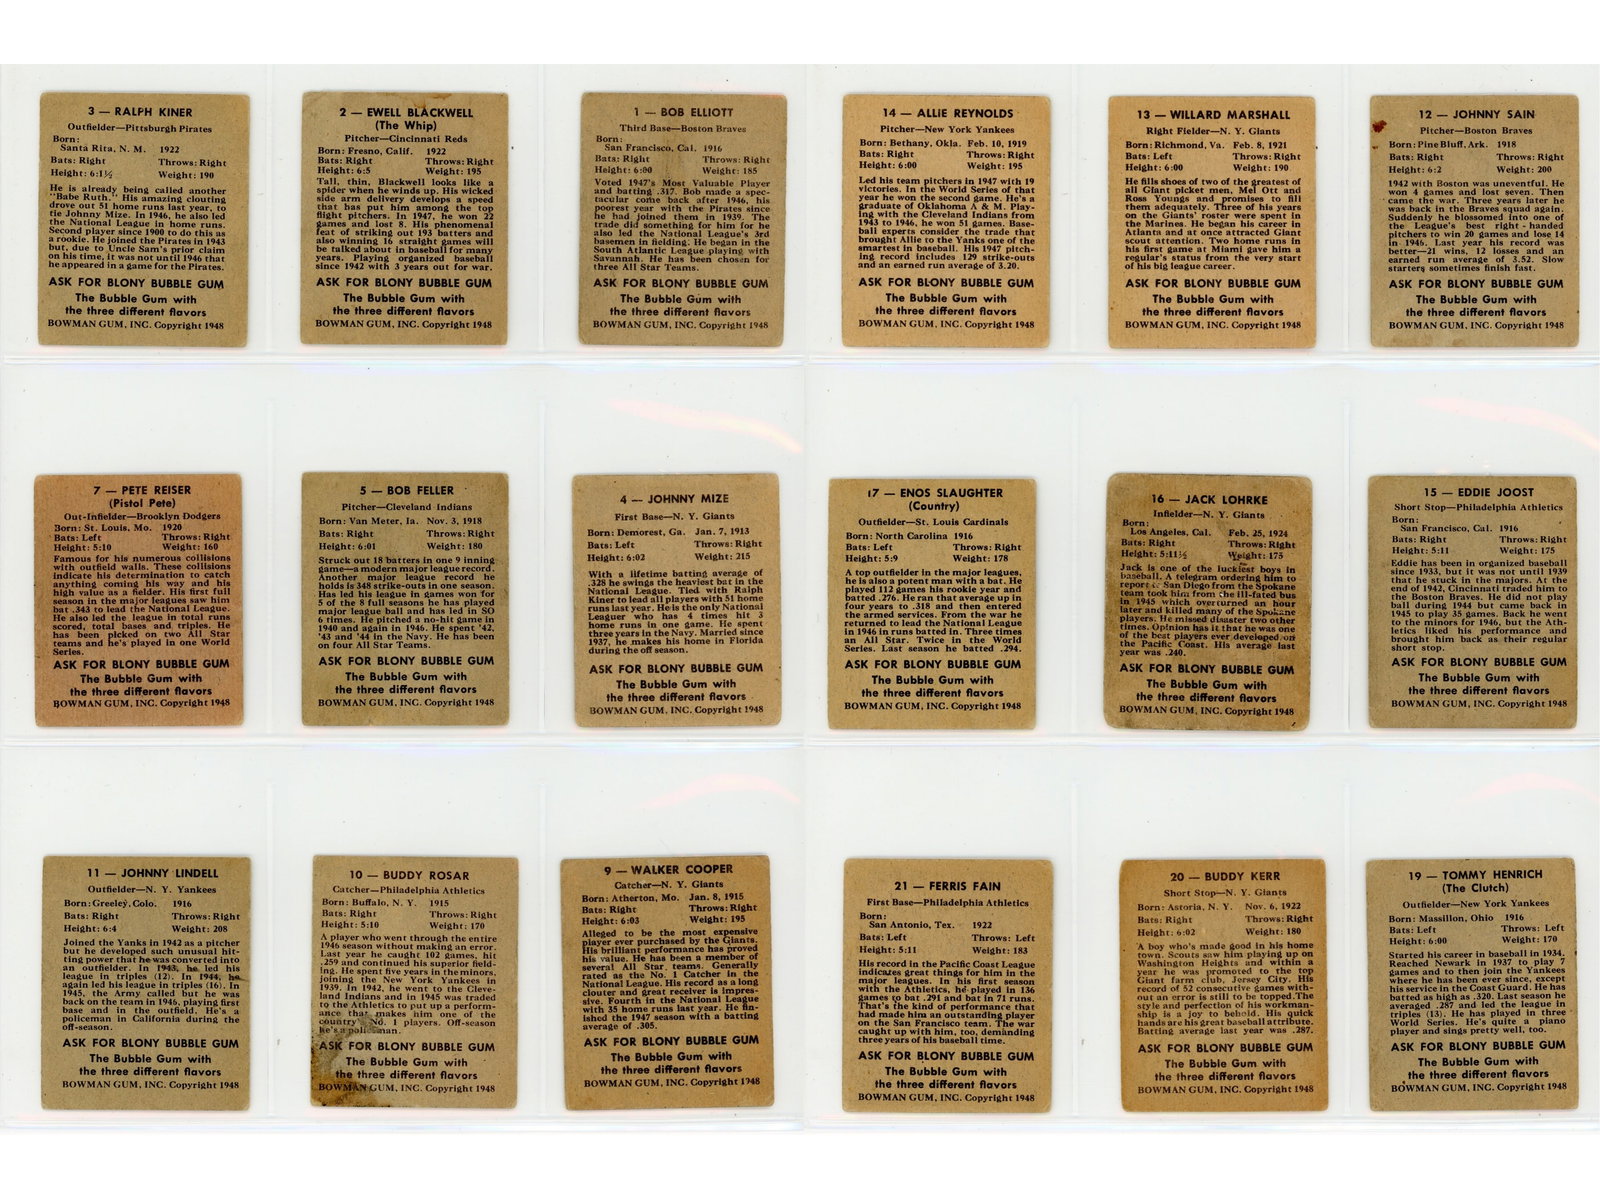 3 — RALPH KINER
Outfielder—Pittsburgh Pirates
Born:
Santa Rita, N. M. 1922
Bats: Right Throws: Right
Height: 6:1½ Weight: 190
He is already being called another
"Babe Ruth." His amazing clouting
drove out 51 home runs last year, to
tie Johnny Mize. In 1946, he also led
the National League in home runs.
Second player since 1900 to do this as
a rookie. He joined the Pirates in 1943
but, due to Uncle Sam's prior claim
on his time, it was not until 1946 that
he appeared in a game for the Pirates.
ASK FOR BLONY BUBBLE GUM
The Bubble Gum with
the three different flavors
BOWMAN GUM, INC. Copyright 1948
2 — EWELL BLACKWELL
(The Whip)
Pitcher—Cincinnati Reds
Born: Fresno, Calif. 1922
Bats: Right Throws: Right
Height: 6:5 Weight: 195
Tall, thin, Blackwell looks like a
spider when he winds up. His wicked
side arm delivery develops a speed
that has put him among the top
flight pitchers. In 1947, he won 22
games and lost 8. His phenomenal
feat of striking out 193 batters and
also winning 16 straight games will
be talked about in baseball for many
years. Playing organized baseball
since 1942 with 3 years out for war.
ASK FOR BLONY BUBBLE GUM
The Bubble Gum with
the three different flavors
BOWMAN GUM, INC. Copyright 1948
1 — BOB ELLIOTT
Third Base—Boston Braves
Born:
San Francisco, Cal. 1916
Bats: Right Throws: Right
Height: 6:00 Weight: 185
Voted 1947's Most Valuable Player
and batting .317. Bob made a spec-
tacular come back after 1946, his
poorest year with the Pirates since
he had joined them in 1939. The
trade did something for him for he
also led the National League's 3rd
basemen in fielding. He began in the
South Atlantic League playing with
Savannah. He has been chosen for
three All Star Teams.
ASK FOR BLONY BUBBLE GUM
The Bubble Gum with
the three different flavors
BOWMAN GUM, INC. Copyright 1948
14 — ALLIE REYNOLDS
Pitcher—New York Yankees
Born: Bethany, Okla. Feb. 10, 1919
Bats: Right Throws: Right
Height: 6:00 Weight: 195
Led his team pitchers in 1947 with 19
victories. In the World Series of that
year he won the second game. He's a
graduate of Oklahoma A & M. Play-
ing with the Cleveland Indians from
1943 to 1946, he won 51 games. Base-
ball experts consider the trade that
brought Allie to the Yanks one of the
smartest in baseball. His 1947 pitch-
ing record includes 129 strike-outs
and an earned run average of 3.20.
ASK FOR BLONY BUBBLE GUM
The Bubble Gum with
the three different flavors
BOWMAN GUM, INC. Copyright 1948
13 — WILLARD MARSHALL
Right Fielder—N. Y. Giants
Born: Richmond, Va. Feb. 8, 1921
Bats: Left Throws: Right
Height: 6:00 Weight: 190
He fills shoes of two of the greatest of
all Giant picket men, Mel Ott and
Ross Youngs and promises to fill
them adequately. Three of his years
on the Giants' roster were spent in
the Marines. He began his career in
Atlanta and at once attracted Giant
scout attention. Two home runs in
his first game at Miami gave him a
regular's status from the very start
of his big league career.
ASK FOR BLONY BUBBLE GUM
The Bubble Gum with
the three different flavors
BOWMAN GUM, INC. Copyright 1948
12 — JOHNNY SAIN
Pitcher—Boston Braves
Born: Pine Bluff, Ark. 1918
Bats: Right Throws: Right
Height: 6:2 Weight: 200
1942 with Boston was uneventful. He
won 4 games and lost seven. Then
came the war. Three years later he
was back in the Braves squad again.
Suddenly he blossomed into one of
the League's best right-handed
pitchers to win 20 games and lose 14
in 1946. Last year his record was
better—21 wins, 12 losses and an
earned run average of 3.52. Slow
starters sometimes finish fast.
ASK FOR BLONY BUBBLE GUM
The Bubble Gum with
the three different flavors
BOWMAN GUM, INC. Copyright 1948
7 — PETE REISER
(Pistol Pete)
Out-Infielder—Brooklyn Dodgers
Born: St. Louis, Mo. 1920
Bats: Left Throws: Right
Height: 5:10 Weight: 160
Famous for his numerous collisions
with outfield walls. These collisions
indicate his determination to catch
anything coming his way and his
high value as a fielder. His first full
season in the major leagues saw him
bat .343 to lead the National League.
He also led the league in total runs
scored, total bases and triples. He
has been picked on two All Star
teams and he's played in one World
Series.
ASK FOR BLONY BUBBLE GUM
The Bubble Gum with
the three different flavors
BOWMAN GUM, INC. Copyright 1948
5 — BOB FELLER
Pitcher—Cleveland Indians
Born: Van Meter, Ia. Nov. 3, 1918
Bats: Right Throws: Right
Height: 6:01 Weight: 180
Struck out 18 batters in one 9 inning
game—a modern major league record.
Another major league record he
holds is 348 strike-outs in one season.
Has led his league in games won for
5 of the 8 full seasons he has played
major league ball and has led in SO
6 times. He pitched a no-hit game in
1940 and again in 1946. He spent '42,
'43 and '44 in the Navy. He has been
on four All Star Teams.
ASK FOR BLONY BUBBLE GUM
The Bubble Gum with
the three different flavors
BOWMAN GUM, INC. Copyright 1948
4 — JOHNNY MIZE
First Base—N. Y. Giants
Born: Demorest, Ga. Jan. 7, 1913
Bats: Left Throws: Right
Height: 6:02 Weight: 215
With a lifetime batting average of
.328 he swings the heaviest bat in the
National League. Tied with Ralph
Kiner to lead all players with 51 home
runs last year. He is the only National
Leaguer who has 4 times hit 3
home runs in one game. He spent
three years in the Navy. Married since
1937, he makes his home in Florida
during the off season.
ASK FOR BLONY BUBBLE GUM
The Bubble Gum with
the three different flavors
BOWMAN GUM, INC. Copyright 1948
17 — ENOS SLAUGHTER
(Country)
Outfielder—St. Louis Cardinals
Born: North Carolina 1916
Bats: Left Throws: Right
Height: 5:9 Weight: 178
A top outfielder in the major leagues,
he is also a potent man with a bat. He
played 112 games his rookie year and
batted .276. He ran that average up in
four years to .318 and then entered
the armed services. From the war he
returned to lead the National League
in 1946 in runs batted in. Three times
an All Star. Twice in the World
Series. Last season he batted .294.
ASK FOR BLONY BUBBLE GUM
The Bubble Gum with
the three different flavors
BOWMAN GUM, INC. Copyright 1948
16 — JACK LOHRKE
Infielder—N. Y. Giants
Born:
Los Angeles, Cal. Feb. 25, 1924
Bats: Right Throws: Right
Height: 5:11½ Weight: 175
Jack is one of the luckiest boys in
baseball. A telegram ordering him to
report to San Diego from the Spokane
team took him from the ill-fated bus
in 1945 which overturned an hour
later and killed many of the Spokane
players. He missed disaster two other
times. Opinion has it that he was one
of the best players ever developed on
the Pacific Coast. His average last
year was .240.
ASK FOR BLONY BUBBLE GUM
The Bubble Gum with
the three different flavors
BOWMAN GUM, INC. Copyright 1948
15 — EDDIE JOOST
Short Stop—Philadelphia Athletics
Born:
San Francisco, Cal. 1916
Bats: Right Throws: Right
Height: 5:11 Weight: 175
Eddie has been in organized baseball
since 1933, but it was not until 1939
that he stuck in the majors. At the
end of 1942, Cincinnati traded him to
the Boston Braves. He did not play
ball during 1944 but came back in
1945 to play 35 games. Back he went
to the minors for 1946, but the Ath-
letics liked his performance and
brought him back as their regular
short stop.
ASK FOR BLONY BUBBLE GUM
The Bubble Gum with
the three different flavors
BOWMAN GUM, INC. Copyright 1948
11 — JOHNNY LINDELL
Outfielder—N. Y. Yankees
Born: Greeley, Colo. 1916
Bats: Right Throws: Right
Height: 6:4 Weight: 208
Joined the Yanks in 1942 as a pitcher
but he developed such unusual hit-
ting power that he was converted into
an outfielder. In 1943, he led his
league in triples (12). In 1944, he
again led his league in triples (16). In
1945, the Army called but he was
back on the team in 1946, playing first
base and in the outfield. He's a
policeman in California during the
off-season.
ASK FOR BLONY BUBBLE GUM
The Bubble Gum with
the three different flavors
BOWMAN GUM, INC. Copyright 1948
10 — BUDDY ROSAR
Catcher—Philadelphia Athletics
Born: Buffalo, N. Y. 1915
Bats: Right Throws: Right
Height: 5:10 Weight: 170
A player who went through the entire
1946 season without making an error.
Last year he caught 102 games, hit
.259 and continued his superior field-
ing. He spent five years in the minors,
joining the New York Yankees in
1939. In 1942, he went to the Cleve-
land Indians and in 1945 was traded
to the Athletics to put up a perform-
ance that makes him one of the
country's No. 1 players. Off-season
he's a policeman.
ASK FOR BLONY BUBBLE GUM
The Bubble Gum with
the three different flavors
BOWMAN GUM, INC. Copyright 1948
9 — WALKER COOPER
Catcher—N. Y. Giants
Born: Atherton, Mo. Jan. 8, 1915
Bats: Right Throws: Right
Height: 6:03 Weight: 195
Alleged to be the most expensive
player ever purchased by the Giants.
His brilliant performance has proved
his value. He has been a member of
several All Star teams. Generally
rated as the No. 1 Catcher in the
National League. His record as a long
clouter and great receiver is impres-
sive. Fourth in the National League
with 35 home runs last year. He fin-
ished the 1947 season with a batting
average of .305.
ASK FOR BLONY BUBBLE GUM
The Bubble Gum with
the three different flavors
BOWMAN GUM, INC. Copyright 1948
21 — FERRIS FAIN
First Base—Philadelphia Athletics
Born:
San Antonio, Tex. 1922
Bats: Left Throws: Left
Height: 5:11 Weight: 183
His record in the Pacific Coast League
indicates great things for him in the
major leagues. In his first season
with the Athletics, he played in 136
games to bat .291 and bat in 71 runs.
That's the kind of performance that
had made him an outstanding player
on the San Francisco team. The war
caught up with him, too, demanding
three years of his baseball time.
ASK FOR BLONY BUBBLE GUM
The Bubble Gum with
the three different flavors
BOWMAN GUM, INC. Copyright 1948
20 — BUDDY KERR
Short Stop—N. Y. Giants
Born: Astoria, N. Y. Nov. 6, 1922
Bats: Right Throws: Right
Height: 6:02 Weight: 180
A boy who's made good in his home
town. Scouts saw him playing up on
Washington Heights and within a
year he was promoted to the top
Giant farm club, Jersey City. His
record of 52 consecutive games with-
out an error is still to be topped. The
style and perfection of his workman-
ship is a joy to behold. His quick
hands are his great baseball attribute.
Batting average last year was .287.
ASK FOR BLONY BUBBLE GUM
The Bubble Gum with
the three different flavors
BOWMAN GUM, INC. Copyright 1948
19 — TOMMY HENRICH
(The Clutch)
Outfielder—New York Yankees
Born: Massillon, Ohio 1916
Bats: Left Throws: Left
Height: 6:00 Weight: 170
Started his career in baseball in 1934.
Reached Newark in 1937 to play 7
games and to then join the Yankees
where he has been ever since, except
his service in the Coast Guard. He has
batted as high as .320. Last season he
averaged .287 and led the league in
triples (13). He has played in three
World Series. He's quite a piano
player and sings pretty well, too.
ASK FOR BLONY BUBBLE GUM
The Bubble Gum with
the three different flavors
BOWMAN GUM, INC. Copyright 1948